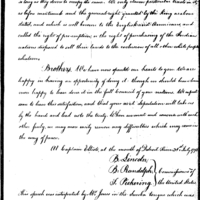 as long as they desire to occupy the same. We only claim particular tracts in it,
as before mentioned and the general right granted by the King as above
stated, and which is well known to the English and Americans and
called the right of pre-emption, or the right of purchasing of the Indian
nations disposed to sell their lands to the exclusion of all other white people
whatever.
Brothers, We have now opened our hearts to you. We are
happy in having an opportunity of doing it though we should have been
more happy to have done it in the full council of your nations. We expect
soon to have this satisfaction and that your next deputation will take us
by the hand and lead us to the treaty. When we meet and converse with each
other freely, we may more easily remove any difficulties which may come in
the way of peace.
At Captain Elliot's, at the mouth of Detroit River, 31st July, 1793.
B. Lincoln
B. Randolph
T. Pickering
Commissioners of
the United States
This speech was interpreted by Mr. Jones in the Seneca tongue which was